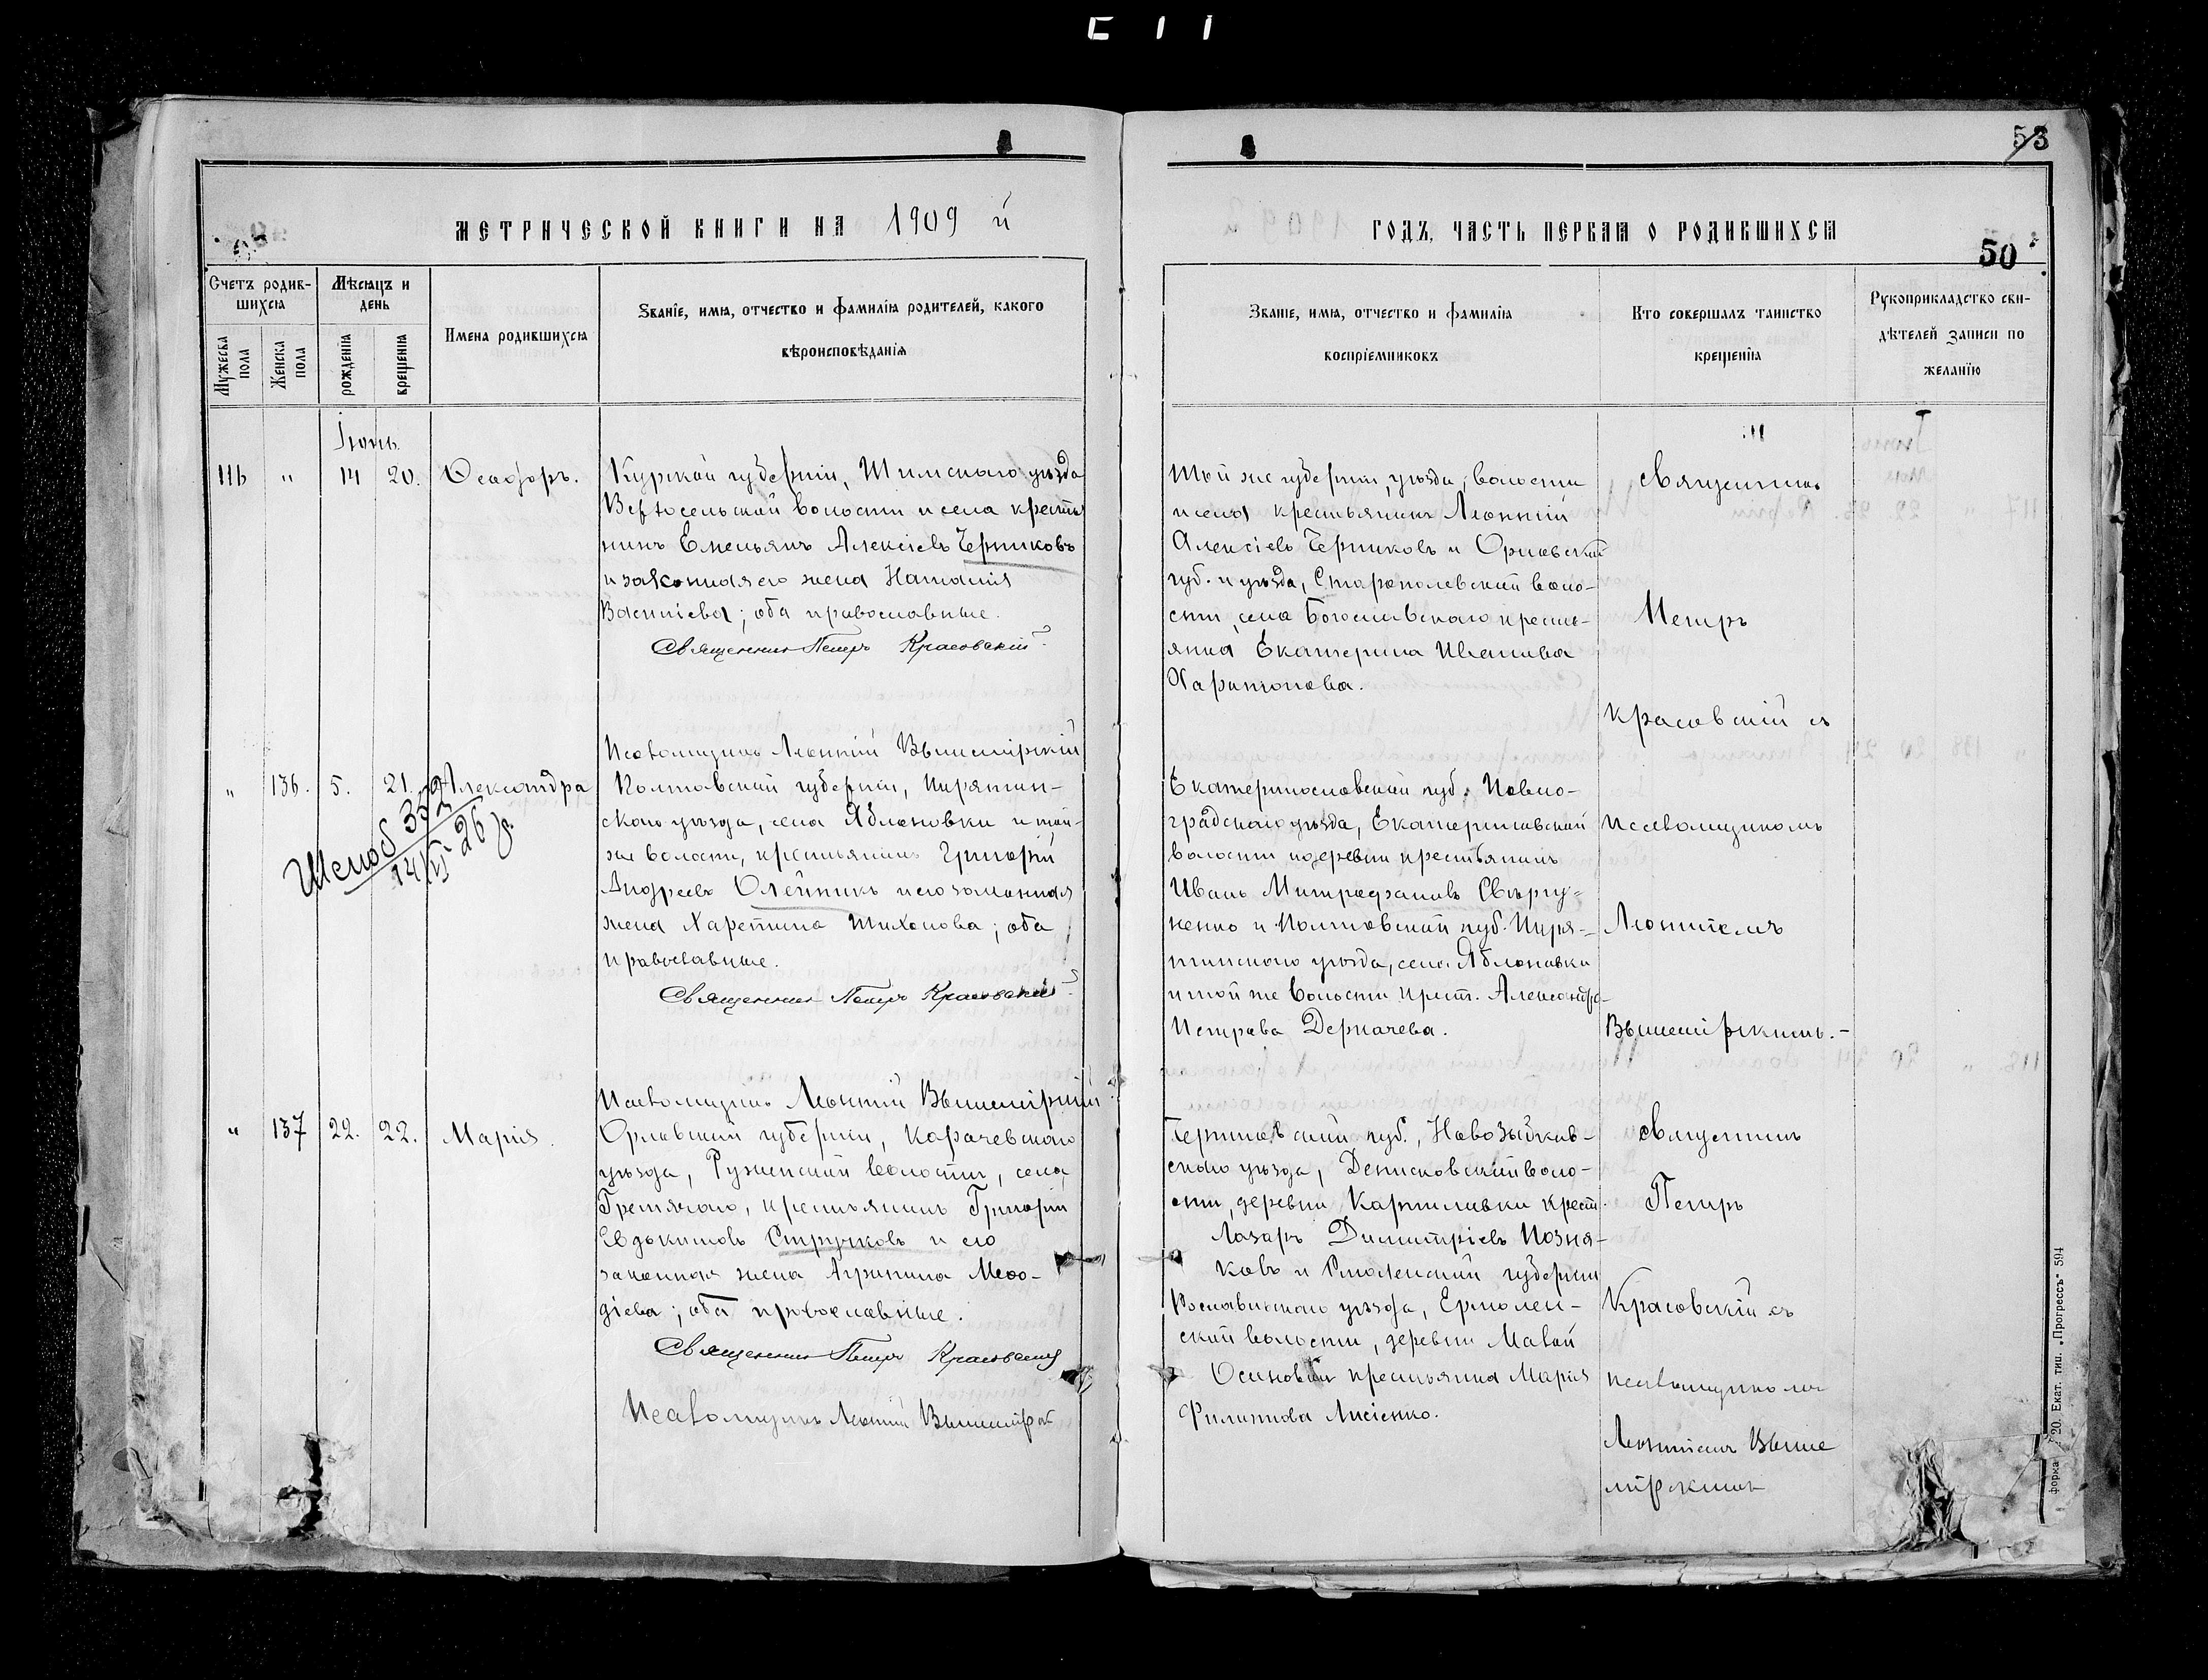 53
МЕТРИЧЕСКОЙ КНИГИ НА 1909 й
ГОДЪ, ЧАСТЬ ПЕРВАЯ О РОДИВШИХСЯ
50
Счетъ родив-
шихся
Мужеска пола
Женска пола
Мѣсяцъ и
день
рожденія
крещенія
Имена родившихся
Званіе, имя, отчество и фамилія родителей, какого
вѣроисповѣданія
Званіе, имя, отчество и фамилія
воспріемниковъ
Кто совершалъ таинство
крещенія
Рукоприкладство сви-
дѣтелей записи по
желанію
Іюнь.
116 " 14 20. Ѳеодоръ.
Курской губерніи, уѣзда
волости и села крестья
нинъ Емельянъ Алексіевъ Черниковъ
и законная его жена Наталія
Василіева; оба православные.
Священникъ Петръ Красовскій
Той же губерніи, уѣзда, волости
и села крестьянинъ Леонтій
Алексіевъ Черниковъ и Орловской
губ. и уѣзда, воло-
сти, села Богословскаго кресть-
янка Екатерина Иванова
Харитонова.
Священникъ
Петръ
Красовскій съ
" 136. 5. 21. Александра
14/VI 26
Псаломщикъ Леонтій Вышемірскій
Полтавской губерніи, Пирятин-
скаго уѣзда, села Яблоновки и той-
же волости, крестьянинъ Григорій
Андреевъ Олейникъ и его законная
жена Харетина Тихонова; оба
православные.
Священникъ Петръ Красовскій
Екатеринославской губ., Павло-
градскаго уѣзда, Екатериновской
волости и деревни крестьянинъ
Иванъ Митрофановъ
ненко и Полтавской губ. Пиря-
тинскаго уѣзда, села Яблоновки
и той же волости крест. Александра
Петрова Деркачева.
Псаломщикомъ
Леонтіемъ
Вышемірскимъ.-
" 137 22. 22. Марія.
Псаломщикъ Леонтій Вышемірскій
Орловской губерніи, Карачевскаго
уѣзда, Руженской волости, села
Гремячаго, крестьянинъ Григорій
Евдокимовъ Стручковъ и его
законная жена Агрипина Меѳо-
діева; оба православные.
Священникъ Петръ Красовскій
Псаломщикъ Леонтій Вышемірскій
Черниговской губ., Новозыбков-
скаго уѣзда, Денисковской воло-
сти, деревни Карпиловки крест.
Лазарь Димитріевъ Позня-
ковъ и Смоленской губерніи
Рославльскаго уѣзда, Ермолен-
ской волости, деревни Малой
Осиновки крестьянка Марія
Филипова Лисіенко.
Священникъ
Петръ
Красовскій съ
псаломщикомъ
Леонтіемъ Выше
мірскимъ
форма 20. Екат. тип. „Прогрессъ" 594